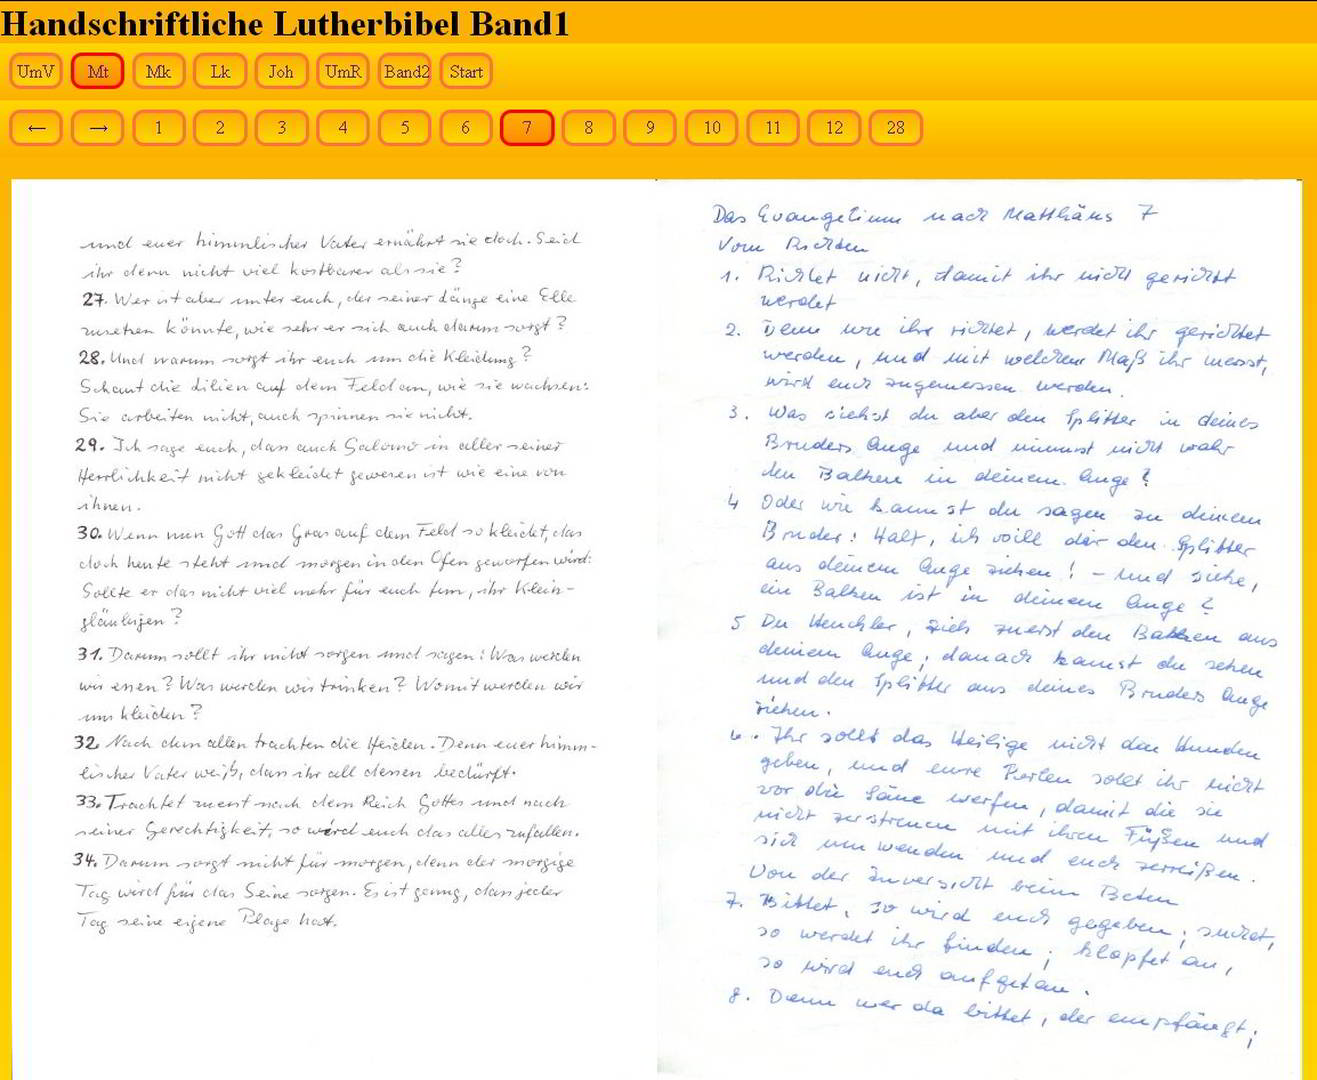 Handschriftliche Lutherbibel Band1
UmV Mt Mk Lk Joh UmR Band2 Start
← → 1 2 3 4 5 6 7 8 9 10 11 12 28
und euer himmlischer Vater ernährt sie doch. Seid
ihr denn nicht viel kostbarer als sie?
27. Wer ist aber unter euch, der seiner Länge eine Elle
zusetzen könnte, wie sehr er sich auch darum sorgt?
28. Und warum sorgt ihr euch um die Kleidung?
Schaut die Lilien auf dem Feld an, wie sie wachsen:
Sie arbeiten nicht, auch spinnen sie nicht.
29. Ich sage euch, dass auch Salomo in aller seiner
Herrlichkeit nicht gekleidet gewesen ist wie eine von
ihnen.
30. Wenn nun Gott das Gras auf dem Feld so kleidet, das
doch heute steht und morgen in den Ofen geworfen wird:
Sollte er das nicht viel mehr für euch tun, ihr Klein-
gläubigen?
31. Darum sollt ihr nicht sorgen und sagen: Was werden
wir essen? Was werden wir trinken? Womit werden wir
uns kleiden?
32. Nach dem allen trachten die Heiden. Denn euer himm-
lischer Vater weiß, dass ihr all dessen bedürft.
33. Trachtet zuerst nach dem Reich Gottes und nach
seiner Gerechtigkeit, so wird euch das alles zufallen.
34. Darum sorgt nicht für morgen, denn der morgige
Tag wird für das Seine sorgen. Es ist genug, dass jeder
Tag seine eigene Plage hat.
Das Evangelium nach Matthäus 7
Vom Richten
1. Richtet nicht, damit ihr nicht gerichtet
werdet
2. Denn wie ihr richtet, werdet ihr gerichtet
werden, und mit welchem Maß ihr messt,
wird euch zugemessen werden.
3. Was siehst du aber den Splitter in deines
Bruders Auge und nimmst nicht wahr
den Balken in deinem Auge?
4 Oder wie kannst du sagen zu deinem
Bruder: Halt, ich will dir den Splitter
aus deinem Auge ziehen! – und siehe,
ein Balken ist in deinem Auge?
5 Du Heuchler, zieh zuerst den Balken aus
deinem Auge; danach kannst du sehen
und den Splitter aus deines Bruders Auge
ziehen.
6. Ihr sollt das Heilige nicht den Hunden
geben, und eure Perlen sollt ihr nicht
vor die Säue werfen, damit die sie
nicht zerstreuen mit ihren Füßen und
sich umwenden und euch zerreißen.
Von der Zuversicht beim Beten
7. Bittet, so wird euch gegeben; suchet,
so werdet ihr finden; klopfet an,
so wird euch aufgetan.
8. Denn wer da bittet, der empfängt;